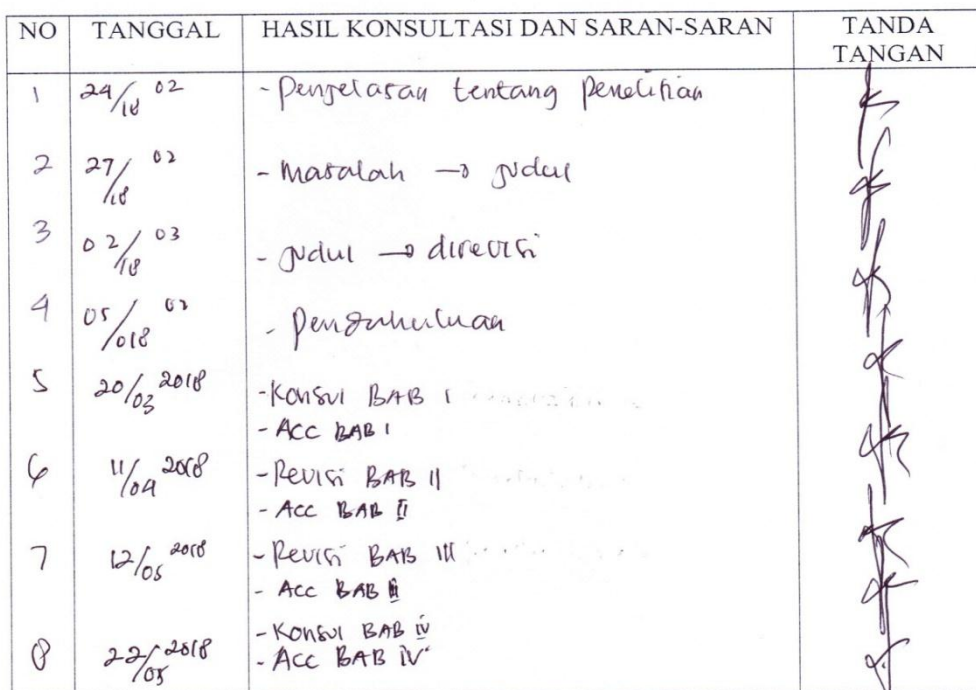 NO TANGGAL HASIL KONSULTASI DAN SARAN-SARAN TANDA TANGAN
1 24/18 02 - Penjelasan tentang Penelitian
2 27/18 02 - Masalah → judul
3 02/18 03 - judul → direvisi
4 05/018 03 - Pendahuluan
5 20/03 2018 - Konsul BAB I
- Acc BAB I
6 11/04 2018 - Revisi BAB II
- Acc BAB II
7 12/05 2018 - Revisi BAB III
- Acc BAB
- Konsul BAB IV
8 22/05 2018 - Acc BAB IV